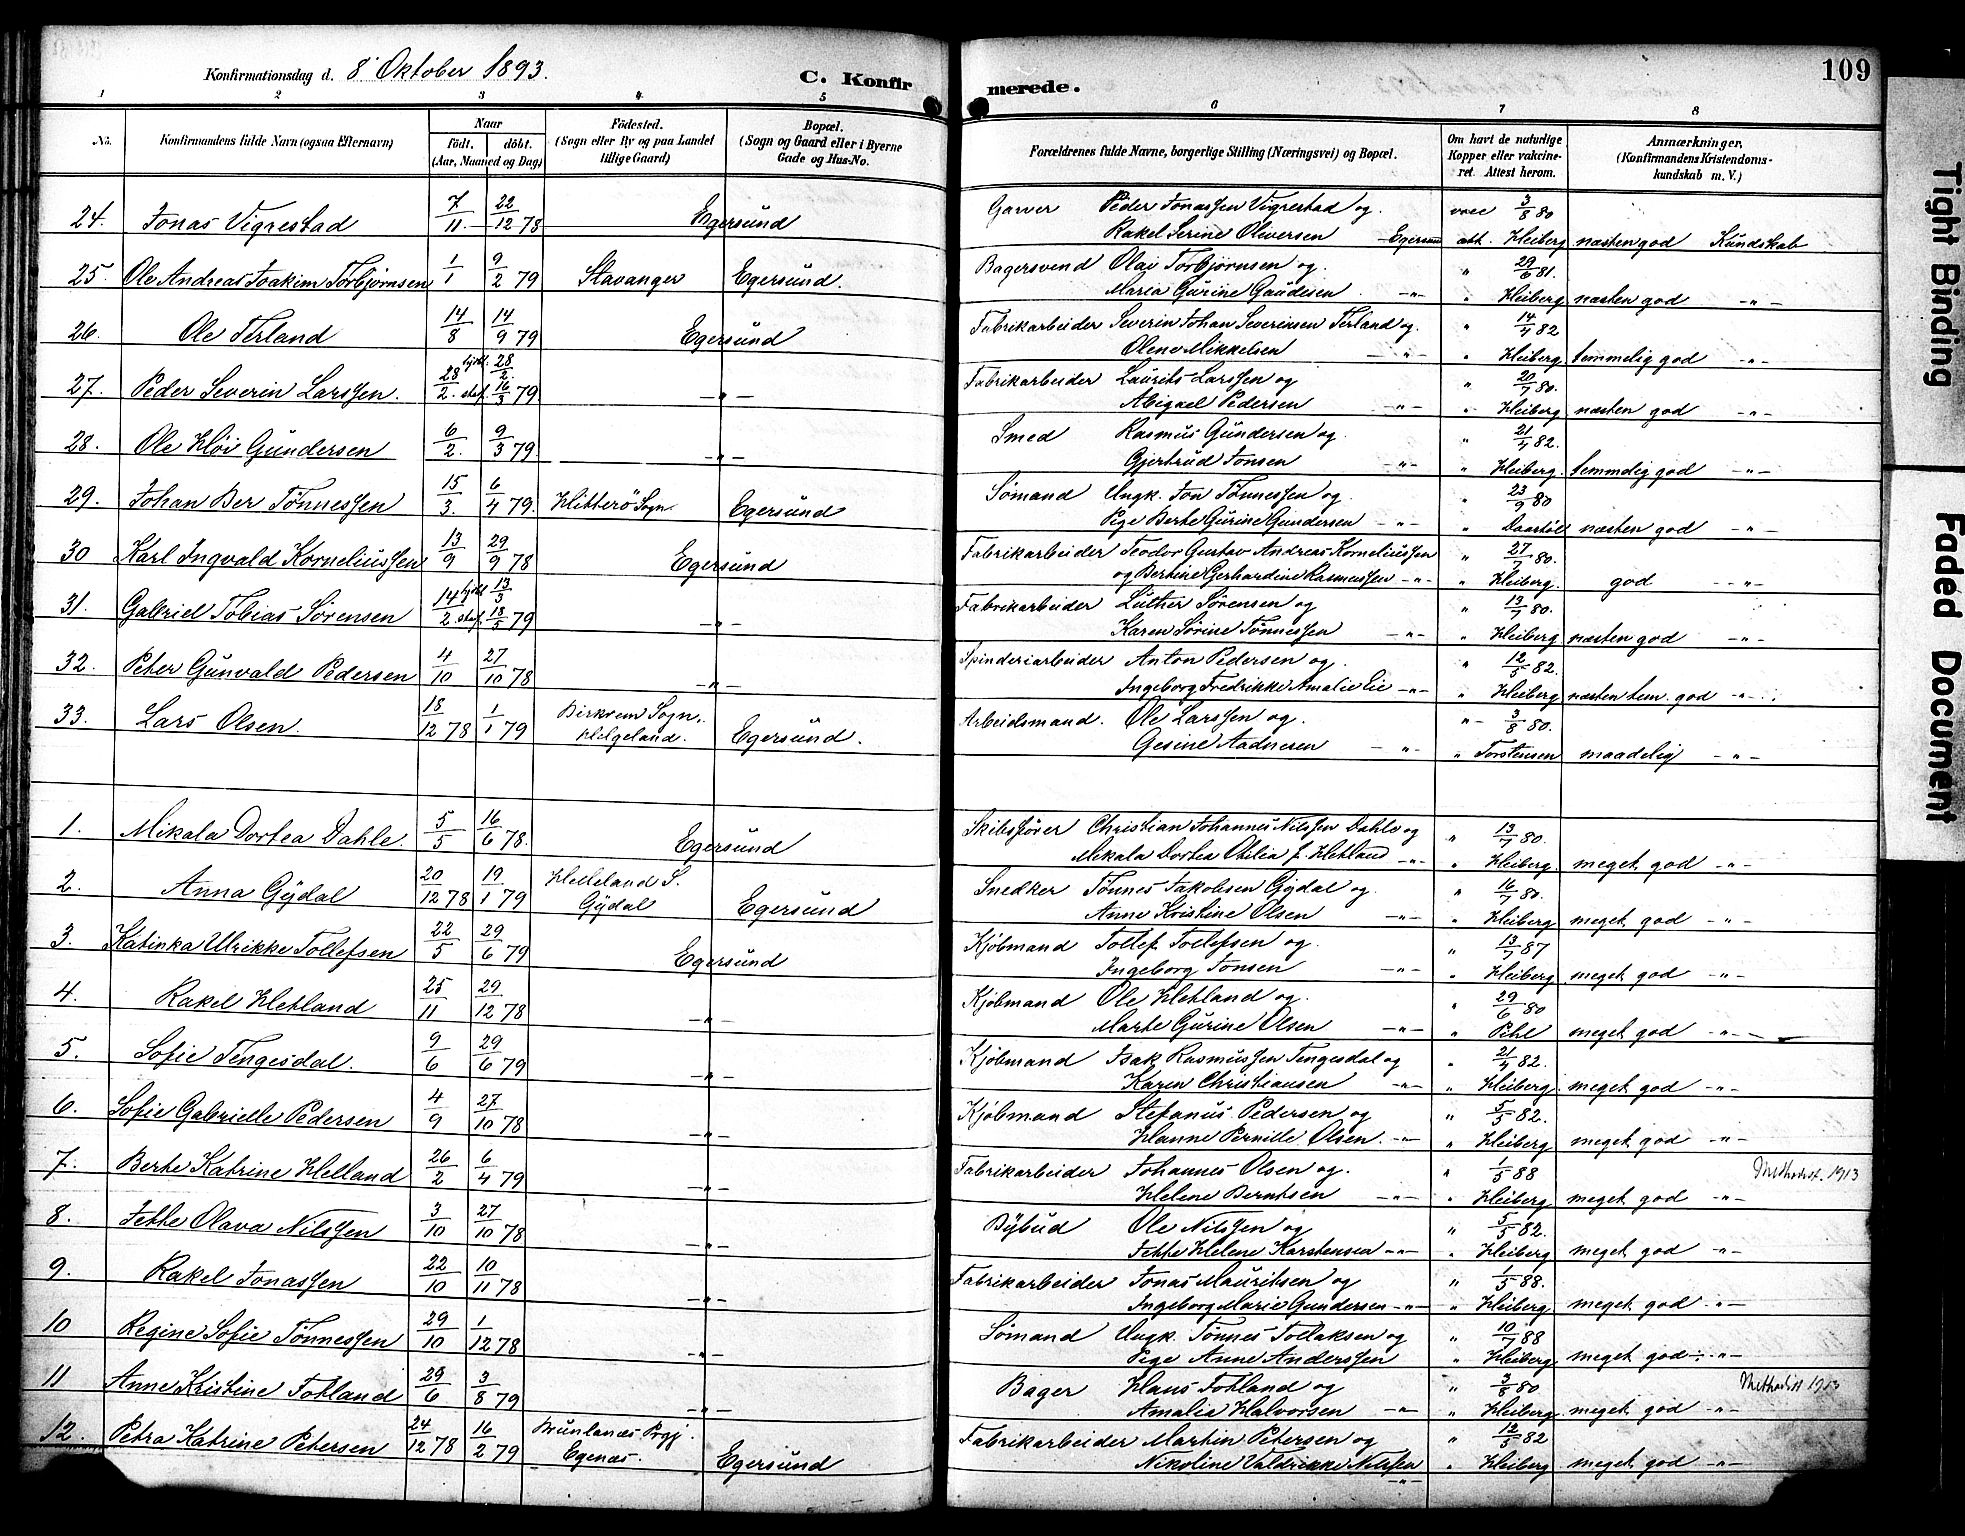 Konfirmationsdag d. 8' Oktober 1893. C. Konfirmerede. 109
1 2 3 4 5 6 7 8
No. Konfirmandens fulde Navn (ogsaa Efternavn) Naar födt. döbt. (Aar, Maaned og Dag) Födested. (Sogn eller By og paa Landet tillige Gaard) Bopæl. (Sogn og Gaard eller i Byerne Gade og Hus-No. Forældrenes fulde Navne, borgerlige Stilling (Næringsvei) og Bopæl. Om havt de naturlige Kopper eller vakcineret. Attest herom. Anmærkninger, (Konfirmandens Kristendomskundskab m. V.)
24. Jonas Vigrestad 7/11 22/12 78 Egersund Garver Peder Jonassen Vigrestad og vacc 3/8 80
Rakel Serine Oliversen Egersund att. Heiberg næsten god Kundskab
25. Ole Andreas Joakim Torbjørnsen 1/1 9/2 79 Stavanger Egersund. Bagersvend Olai Torbjørnsen og " 29/6 81.
Maria Gurine Gaudesen -"- " Heiberg næsten god -"-
26. Ole Terland 14/8 14/9 79 Egersund Fabrikarbeider Severin Johan Severinsen Terland og " 14/4 82
Olene Mikkelsen -"- " Heiberg temmelig god -"-
27. Peder Severin Larssen. 28/2 hjdt. 28/2. staf. 16/3 79 -"- Fabrikarbeider Laurits Larssen og " 20/7 80.
Abigael Pedersen -"- " Heiberg næsten god -"-
28. Ole Kløi Gundersen 6/2. 9/3 79. -"- Smed Rasmus Gundersen og " 21/4 82.
Gjertrud Jonsen -"- " Heiberg. temmelig god -"-
29. Johan Ber Tønnessen 15/3. 6/4 79. Hitterø Sogn. Egersund Sømand Ungk. Jon Tønnessen og " 23/9 80
Pige Berte Gurine Gundersen -"- " Daastøl næsten god -"-
30 Karl Ingvald Korneliussen 13/9 29/9 78 Egersund Fabrikarbeider Teodor Gustav Andreas Korneliussen " 27/7 80.
og Bertine Gerhardine Rasmussen -"- " Heiberg. god -"-
31. Gabriel Tobias Sørensen 14/2 hjdt 13/3 staf. 18/5 79 -"- Fabrikarbeider Luther Sørensen og " 13/7 80.
Karen Sørine Tønnessen -"- " Heiberg næsten god -"-
32. Peter Gunvald Pedersen 4/10 27/10 78 -"- Spinderiarbeider Anton Pedersen og " 12/5 82.
Ingeborg Fredrikke Amalie Lie -"- " Heiberg næsten tem. god -"-
33. Lars Olsen. 18/12 78 1/1 79 Birkrem Sogn. Helgeland. Egersund. Arbeidsmand. Ole Larssen og "- 3/8 80.
Gesine Aadnesen -"- " Torstensen maadelig -"-
1. Mikala Dortea Dahle. 5/5 16/6 78. Egersund Skibsfører Christian Johannes Nilssen Dahle og " 13/7 80.
Mikala Dortea Otilia f. Hetland -"- " Heiberg. meget god -"-
2. Anna Gydal 20/12 78 19/1 79 Helleland S. Gydal Egersund Snedker Tønnes Jakobsen Gydal og " 16/7 80.
Anne Kristine Olsen -"- " Heiberg meget god -"-
3. Katinka Ulrikke Tollefsen 22/5 29/6 79 Egersund Kjøbmand Tollef Tollefsen og " 13/7 87
Ingeborg Jonsen -"- " Heiberg meget god -"-
4. Rakel Hetland 25/11 29/12 78 -"- Kjøbmand Ole Hetland og " 29/6 80
Marte Gurine Olsen -"- " Pihl meget god -"-
5. Sofie Tengesdal. 9/6 29/6 79 -"- Kjøbmand Isak Rasmussen Tengesdal og " 21/4 82.
Karen Christiansen -"- " Heiberg. meget god -"-
6. Sofie Gabrielle Pedersen 4/9 27/10 78 -"- Kjøbmand Stefanus Pedersen og " 5/5 82.
Hanne Pernille Olsen. -"- " Heiberg meget god -"-
7. Berte Katrine Helland 26/2 6/4 79 -"- Fabrikarbeider Johannes Olsen og " 1/5 88 Methodist. 1913
Helene Berntsen -"- " Heiberg meget god -"-
8. Jette Olava Nilssen 3/10 27/10 78 -"- Bybud Ole Nilssen og " 5/5 82.
Jette Helene Karstensen -"- " Heiberg meget god -"-
9. Rakel Jonassen 22/10 10/11 78 -"- Fabrikarbeider Jonas Mauritsen og " 1/5 88.
Ingeborg Marie Gundersen -"- " Heiberg meget god -"-
10 Regine Sofie Tønnessen 29/10 1/12 78 -"- Sømand Ungk. Tønnes Tollaksen og " 10/7 88
Pige Anne Anderssen " Heiberg meget god -"-
11 Anne Kristine Totland 29/6 3/8 79 -"- Bager Hans Totland og " 3/8 80 Methodist 1913
Amalia Halvorsen -"- " Heiberg. meget god -"-
12. Petra Katrine Petersen 24/12 78 16/2 79 Brunlanæs Prgj. Egenæs. Egersund Fabrikarbeider Martin Petersen og " 12/5 82
Nikoline Valdrikke Nilssen -"- " Heiberg meget god -"-
Tight Binding
Faded Document